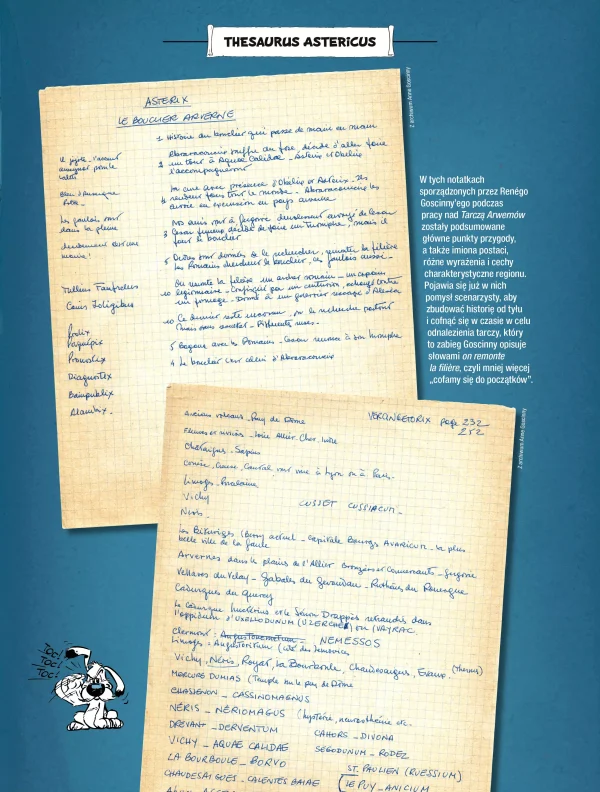 THESAURUS ASTERICUS
Z archiwum Anne Goscinny
ASTERIX
LE BOUCLIER ARVERNE
1 Histoire du bouclier qui passe de main en main
Abraracourcix souffre du foie décide d'aller faire
2 un tour à Aquae Calidae - Astérix et Obélix
l'accompagneront
Abraracourcix
Nos amis sont à Gergovie
3 César furieux décide de faire un triomphe, mais il
faut le bouclier
5 Ordres sont donnés de le rechercher, remonte la filière
les Romains cherchent le bouclier, les gaulois aussi -
On remonte la filière un archer romain - un copain
10 légionnaire - confisqué par un centurion, échangé contre
donné à un guerrier rescapé d'Alésia
10 Ce dernier reste inconnu, on le recherche partout
5 Bagarre avec les Romains. César renonce à son triomphe
4 Le bouclier c'est celui d'Abraracourcix
Les gaulois sont
dans la pleine
Tullius Fanfrelus
Caius Joligibus
Podix
Pagalpix
Pronostix
Diagnostix
Bainpublix
Alambix.
W tych notatkach
sporządzonych przez Renégo
Goscinny'ego podczas
pracy nad Tarczą Arwernów
zostały podsumowane
główne punkty przygody,
a także imiona postaci,
różne wyrażenia i cechy
charakterystyczne regionu.
Pojawia się już w nich
pomysł scenarzysty, aby
zbudować historię od tyłu
i cofnąć się w czasie w celu
odnalezienia tarczy, który
to zabieg Goscinny opisuje
słowami on remonte
la filière, czyli mniej więcej
„cofamy się do początków”.
Z archiwum Anne Goscinny
Anciens volcans - Puy de Dôme
VERCINGETORIX page 232
252
Fleuves et rivières - Loire Allier - Cher, Indre
Châtaignes - Sapins
Corrèze, Creuse, Cantal vont vivre à Lyon ou à Paris -
Limoges - Porcelaine
Vichy
CUSSET CUSSIACUM -
Néris -
Les Bituriges (Berry actuel - capitale Bourges AVARICUM - la plus
belle ville de la Gaule
Arvernes dans la plaine de l'Allier - Gergovie
Vellaves du Velay - Gabales du Gevaudan - Ruthènes du Rouergue
Cadurques du Quercy
Le Cadurque Luctérius et le Sénon Drappès retranchés dans
l'oppidum d'UXELLODUNUM (UZERCHE) ou (VAYRAC
Clermont : Augustonemetum - NEMESSOS
Limoges = Augustoritum (cité des Lemovices
Vichy, Néris, Royat, La Bourboule, Chaudesaigues, Evaux, (thermes)
MERCURE DUMIAS (Temple sur le puy de Dôme
CHASSIGNON - CASSINOMAGNUS
NÉRIS - NÉRIOMAGUS (hystérie, neurasthénie etc.
DREVANT - DERVENTUM
CAHORS - DIVONA
VICHY - AQUAE CALIDAE
SEGODUNUM - RODEZ
LA BOURBOULE - BORVO
ST. PAULIEN (RUESSIUM)
CHAUDESAIGUES - CALENTES BAIAE
LE PUY - ANICIUM
TOC!
TOC!
TOC!